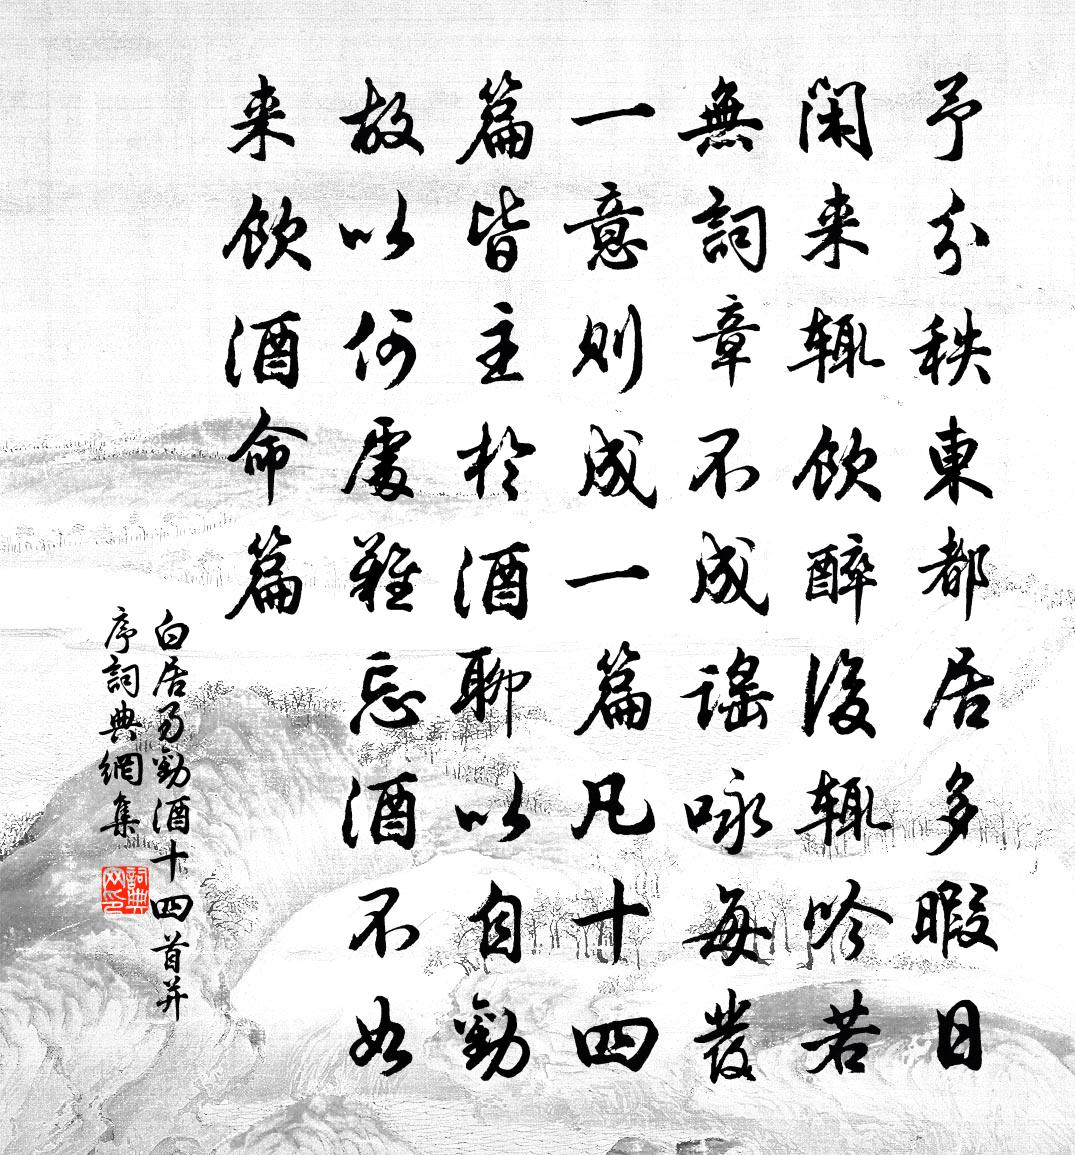 予分秩東都居多暇日
閑来輒飲醉後輒吟若
無詞章不成謠咏每發
一意則成一篇凡十四
篇皆主於酒聊以自勸
故以何處難忘酒不如
来飲酒命篇
白居易勸酒十四首并
序詞典網集
詞典
网印